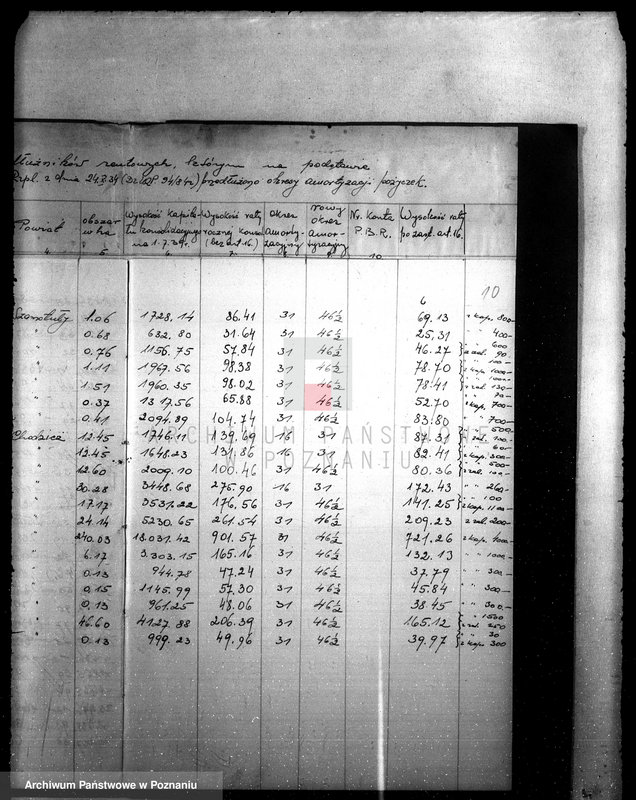 dłużników rentowych, którym na podstawie
Rozpl. z dnia 24.X.34 (Dz.U.RP 94/34r) przedłużono okresy amortyzacji pożyczek.
Powiat obszar w ha Wysokość kapitału konsolidacyjnego na 1.7.39r. Wysokość raty rocznej konsol (bez art. 16.) Okres amortyzacyjny Nowy okres amortyzacyjny Nr. Konta P.B.R. Wysokość raty po zast. art. 16.
4. 5 6 7. 8 9 10
6 10
Szamotuły 1.06 1728,14 86.41 31 46½ 69.13 z kap. 800-
" 0.68 632,80 31.64 31 46½ 25,31 " " 400-
" 0.76 1156.75 57.84 31 46½ 46.27 " " 600 z zal. 90
" 1.11 1967.56 98.38 31 46½ 78.70 z kap. 1000-
" 1.51 1960.35 98.02 31 46½ 78.41 " " 1000- z zal. 130-
" 0.37 1317.56 65.88 31 46½ 52.70 z kap. 700-
" 0.41 2094.89 104.74 31 46½ 83.80 " " 700-
Chodzież 12.45 1746.11 139.69 16 31 87.31 z zal. 100.-
" 12.45 1648.23 131.86 16 31 82.41 z kap. 300-
" 12.60 2009.10 100.46 31 46½ 80.36 " " 500- z zal. 100-
" 30.28 3448.68 275.90 16 31 172.43 " " 260-
" 17.17 3531.22 176.56 31 46½ 141.25 " " 100 z kap. 1100-
" 24.14 5230.65 261.54 31 46½ 209.23 z zal. 200-
" 240.03 18.031.42 901.57 31 46½ 721.26 z kap. 4000-
" 6.17 3.303.15 165.16 31 46½ 132.13 " " 1000-
" 0.13 944.78 47.24 31 46½ 37.79 " " 300-
" 0.15 1145.99 57.30 31 46½ 45.84 " " 300-
" 0.13 961.25 48.06 31 46½ 38.45 " " 300.-
" 46.60 4127.88 206.39 31 46½ 165.12 " " 1500 z zal. 250
" 0.13 999.23 49,96 31 46½ 39.97 " " 30 z kap. 300
ARCHIWUM PAŃSTWOWE
W POZNANIU
Archiwum Państwowe w Poznaniu